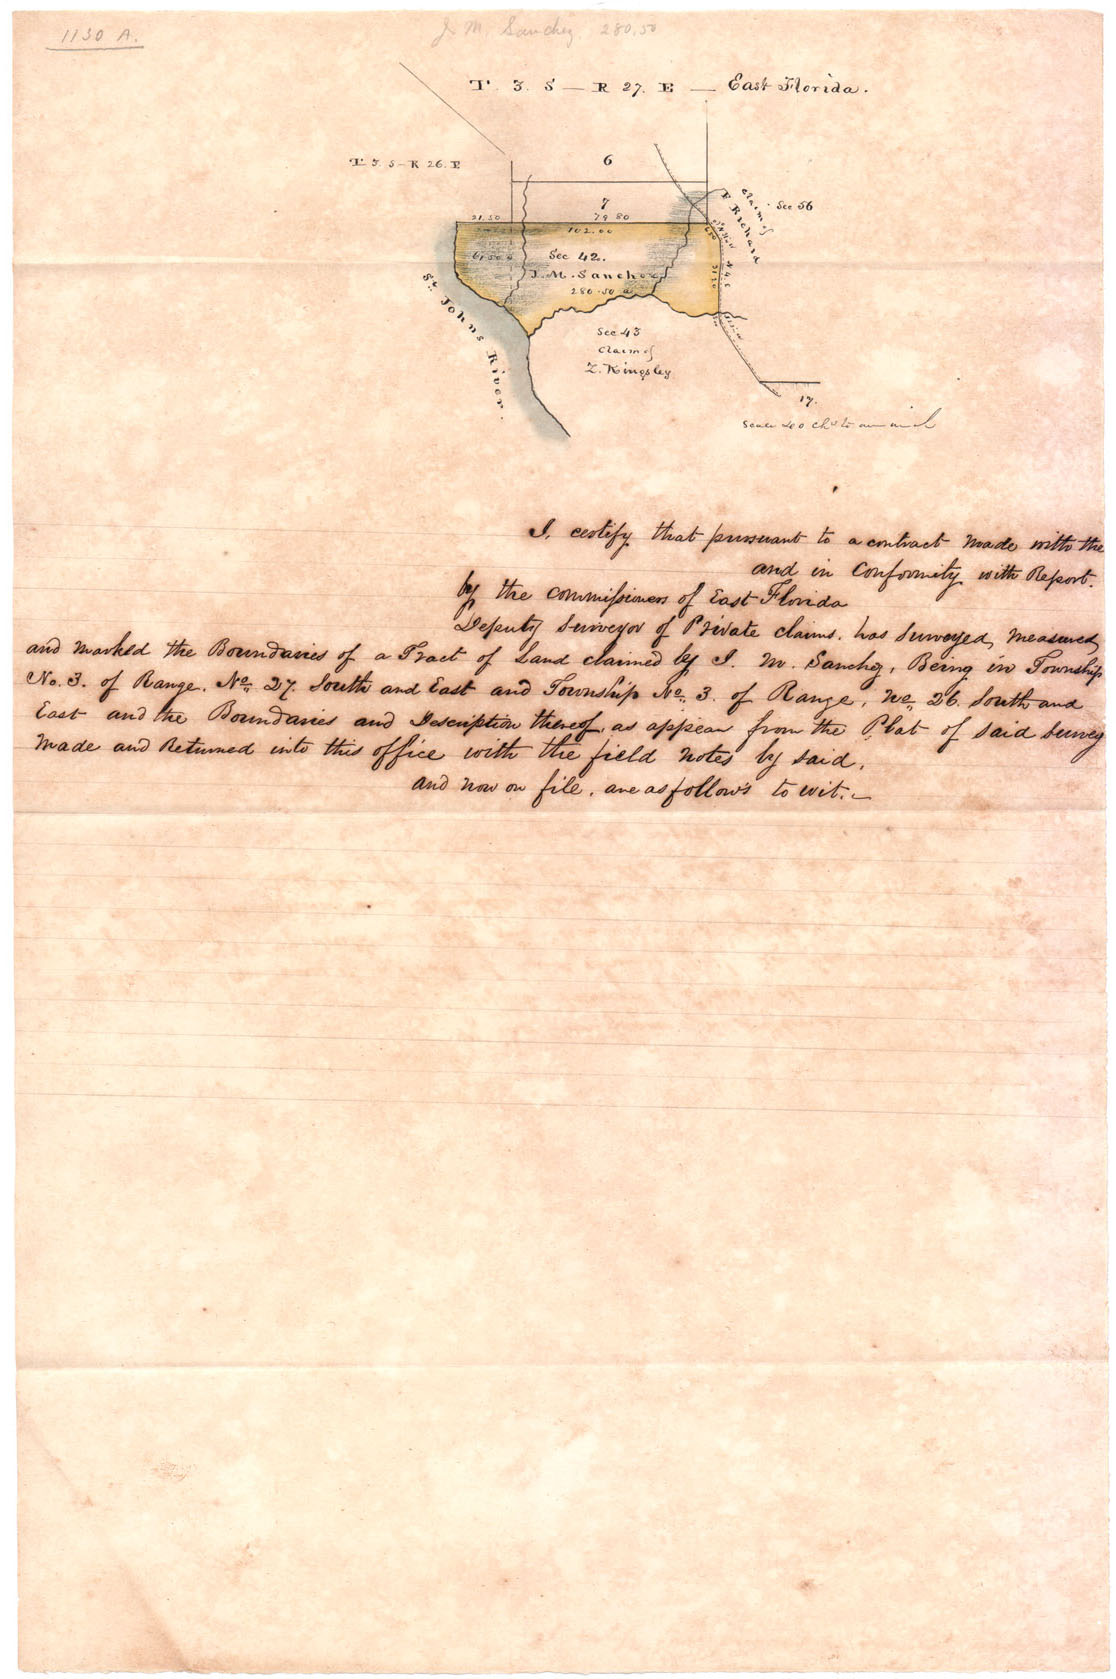 1130 A.
J. M. Sanchez 280.50
T. 3. S — R 27. E — East Florida.
T. 3. S — R 26. E
6
7
Sec 56
claim of
F Richard
21.50
79.80
102.00
Sec 42.
J. M. Sanchez
280.50 a
St. Johns River.
Sec 43
claim of
Z. Kingsley
17.
Scale 40 chs to an inch
I, certify that pursuant to a contract made with the
and in Conformity with Report.
by the commissioners of East Florida
Deputy Surveyor of Private claims. has Surveyed, measured,
and marked the Boundaries of a Tract of Land claimed by J. M. Sanchez, Being in Township
No. 3. of Range. No. 27. South and East and Township No. 3. of Range, No. 26. South and
East and the Boundaries and Description thereof, as appear from the Plat of said survey
made and Returned into this office with the field notes by said.
and now on file. are as follows to wit. —